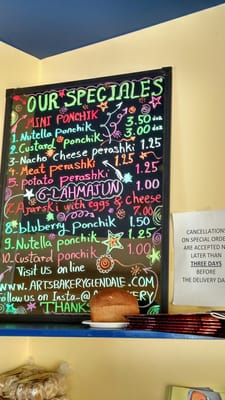 OUR SPECIALES
MINI PONCHIK
1. Nutella ponchik 3.50 doz
2. Custard ponchik 3.00 doz
3- Nacho Cheese perashki 1.25
4. Meat perashki 1.25
5. potato perashki 1.25
6- LAHMAJUN 1.00
7. Ajarski with eggs & cheese 7.00
8. bluberry ponchik 1.50
9. Nutella ponchik 1.25
10. Custard ponchik 1.00
Visit us on line
WWW.ARTSBAKERYGLENDALE.COM
Follow us on Insta
THANKS
CANCELLATION
ON SPECIAL ORDE
ARE ACCEPTED N
LATER THAN
THREE DAYS
BEFORE
THE DELIVERY DA